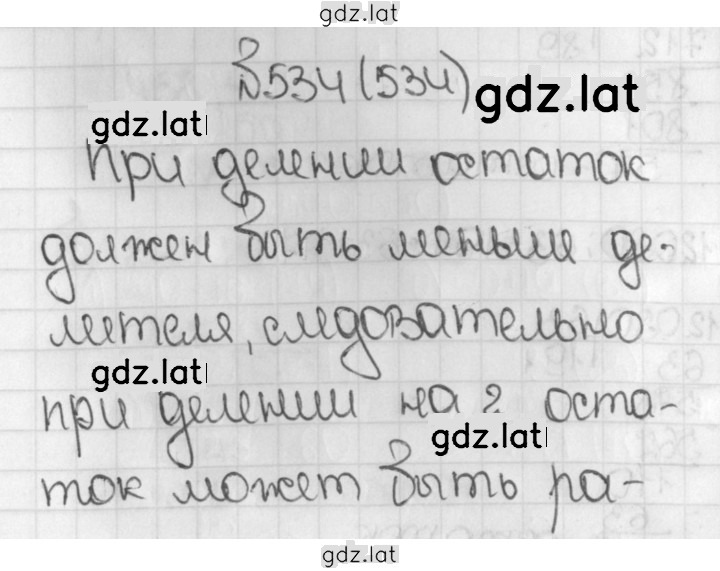 gdz.lat
№534 (534)
gdz.lat
gdz.lat
При делении остаток
должен быть меньше де-
лителя, следовательно
gdz.lat
при делении на 2 оста-
gdz.lat
ток может быть ра-
gdz.lat